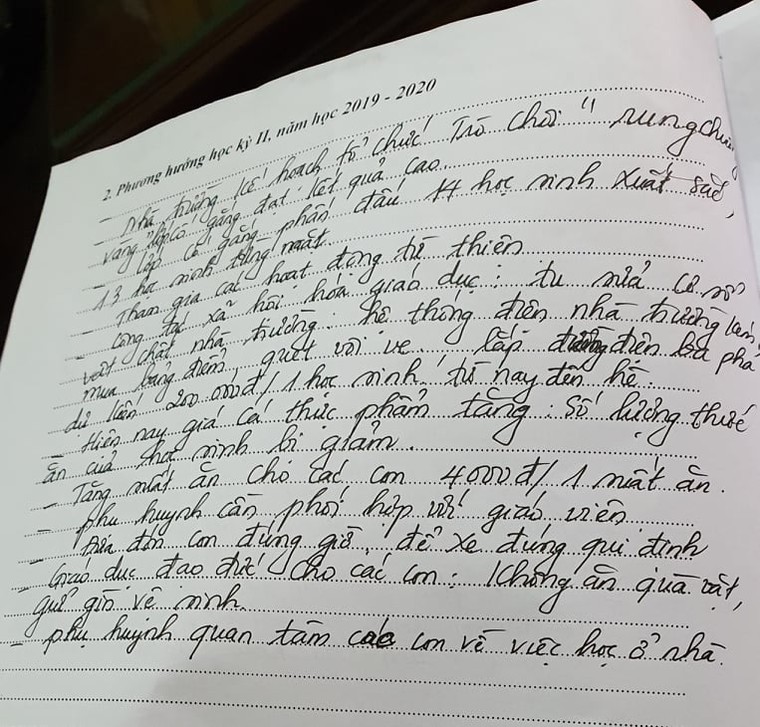 2. Phương hướng học kỳ II, năm học 2019 - 2020
- Nhà trường kế hoạch tổ chức Trò chơi "rung chuông
vàng" lớp cố gắng đạt kết quả cao.
- Lớp cố gắng phấn đấu 14 học sinh xuất sắc,
13 học sinh từng mặt.
- Tham gia các hoạt động từ thiện
- Công tác xã hội hóa giáo dục: tu sửa cơ sở
vật chất nhà trường: hệ thống điện nhà trường kém,
mua bảng điểm, quét vôi ve, lắp đường điện ba pha
dự kiến 200.000đ/1 học sinh từ nay đến hè.
- Hiện nay giá cả thực phẩm tăng: Số lượng thức
ăn của học sinh bị giảm.
- Tăng mất ăn cho các con 4000đ/1 mất ăn.
- phụ huynh cần phối hợp với giáo viên
- Đưa đón con đúng giờ, để xe đúng qui định
- Giáo dục đạo đức cho các con: Không ăn quà vặt,
giữ gìn vệ sinh.
- phụ huynh quan tâm các con về việc học ở nhà.